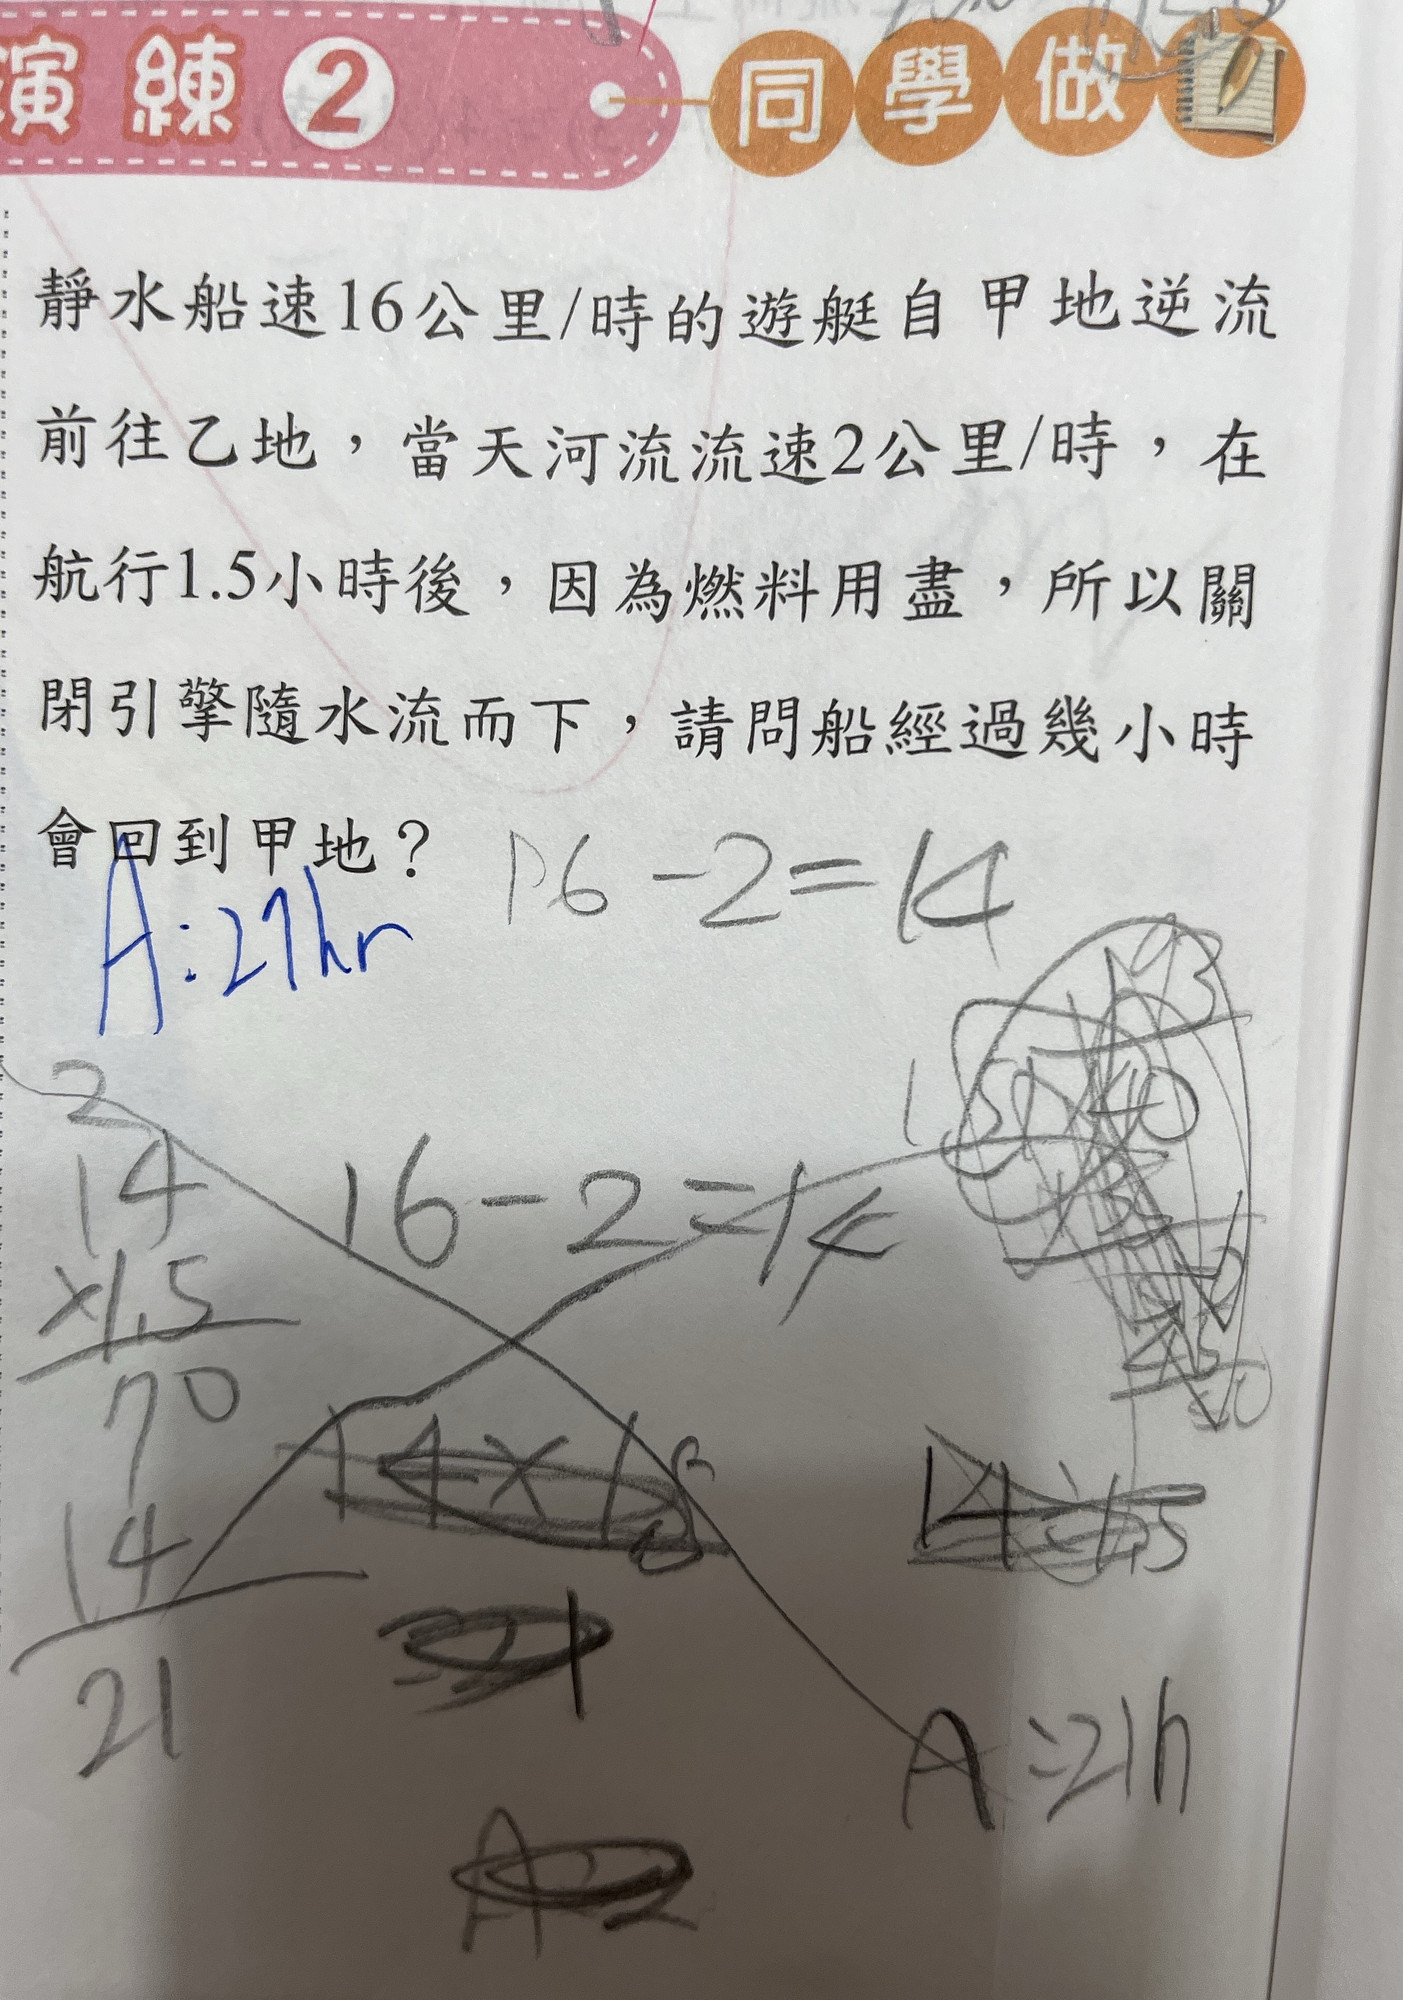 演練2 同學做
靜水船速16公里/時的遊艇自甲地逆流
前往乙地，當天河流流速2公里/時，在
航行1.5小時後，因為燃料用盡，所以關
閉引擎隨水流而下，請問船經過幾小時
會回到甲地？
16-2=14
A:21hr
2
14
×1.5
70
14
21
16-2=14
14×1.5
14×1.5
A=21h